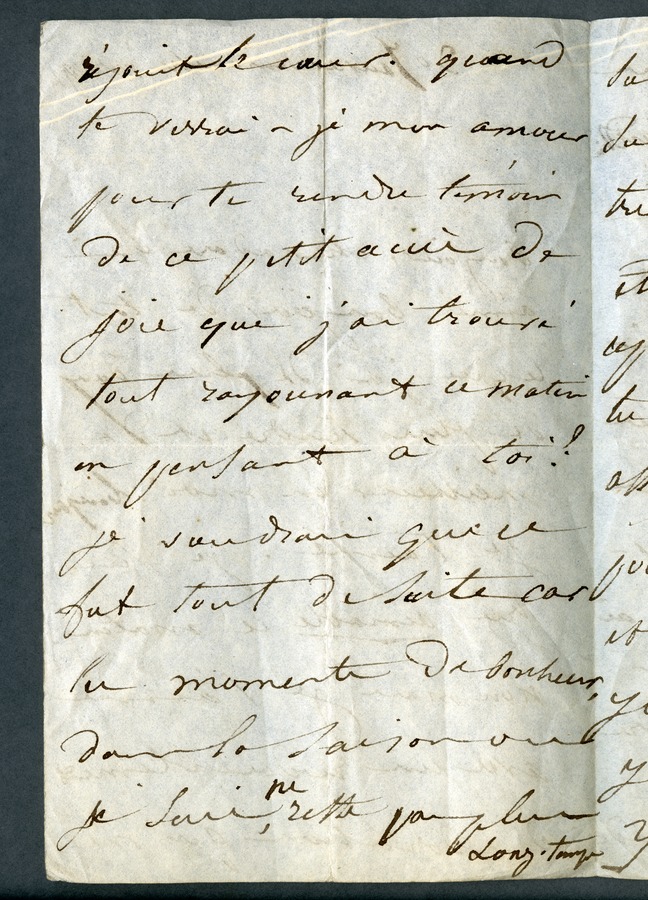 réjouit le cœur. quand
te verrai-je mon amour
pour te rendre témoin
de ce petit accès de
joie que j'ai trouvé
tout rayonnant ce matin
en pensant à toi?
je voudrai que ce
fut tout de suite car
les moments de bonheur,
dans la saison ou
je suis, ne reste pas plus
Longtemps